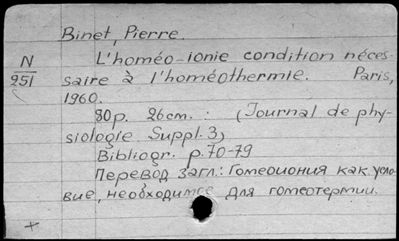 Binet, Pierre.
L'homéo-ionie condition néces-
N
251
saire à l'homéothermie. Paris,
1960.
80p. 26cm. : (Journal de phy-
siologie Suppl. 3)
Bibliogr. p.70-79
Перевод загл.: Гомеоиония как усло-
вие, необходимое для гомеотермии.
+